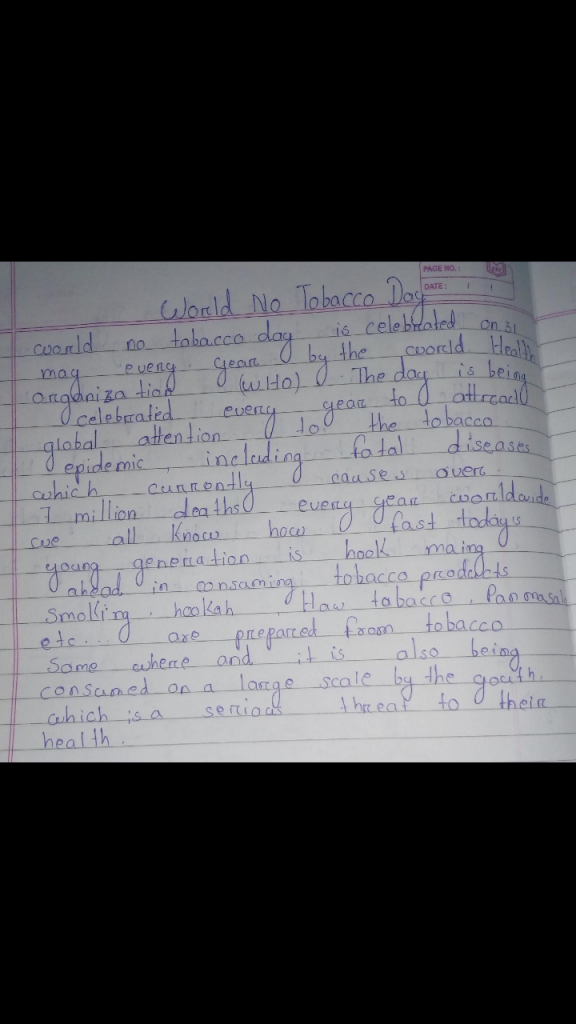 PAGE NO.:
DATE: / /
World No Tobacco Day
world no tobacco day is celebrated on 31
may every year by the world Health
organiza tion (WHO). The day is being
celebrated every year to attract
global attention to the tobacco
epidemic, including fatal diseases
which currently causes over
7 million deaths every year worldwide
we all know how fast today's
young generation is hook maing
ahead in consuming tobacco products
Smoking. hookah, Haw tobacco, Pan masala
etc.... are prepared from tobacco
Some where and it is also being
consumed on a large scale by the youth.
which is a serious threat to their
health.